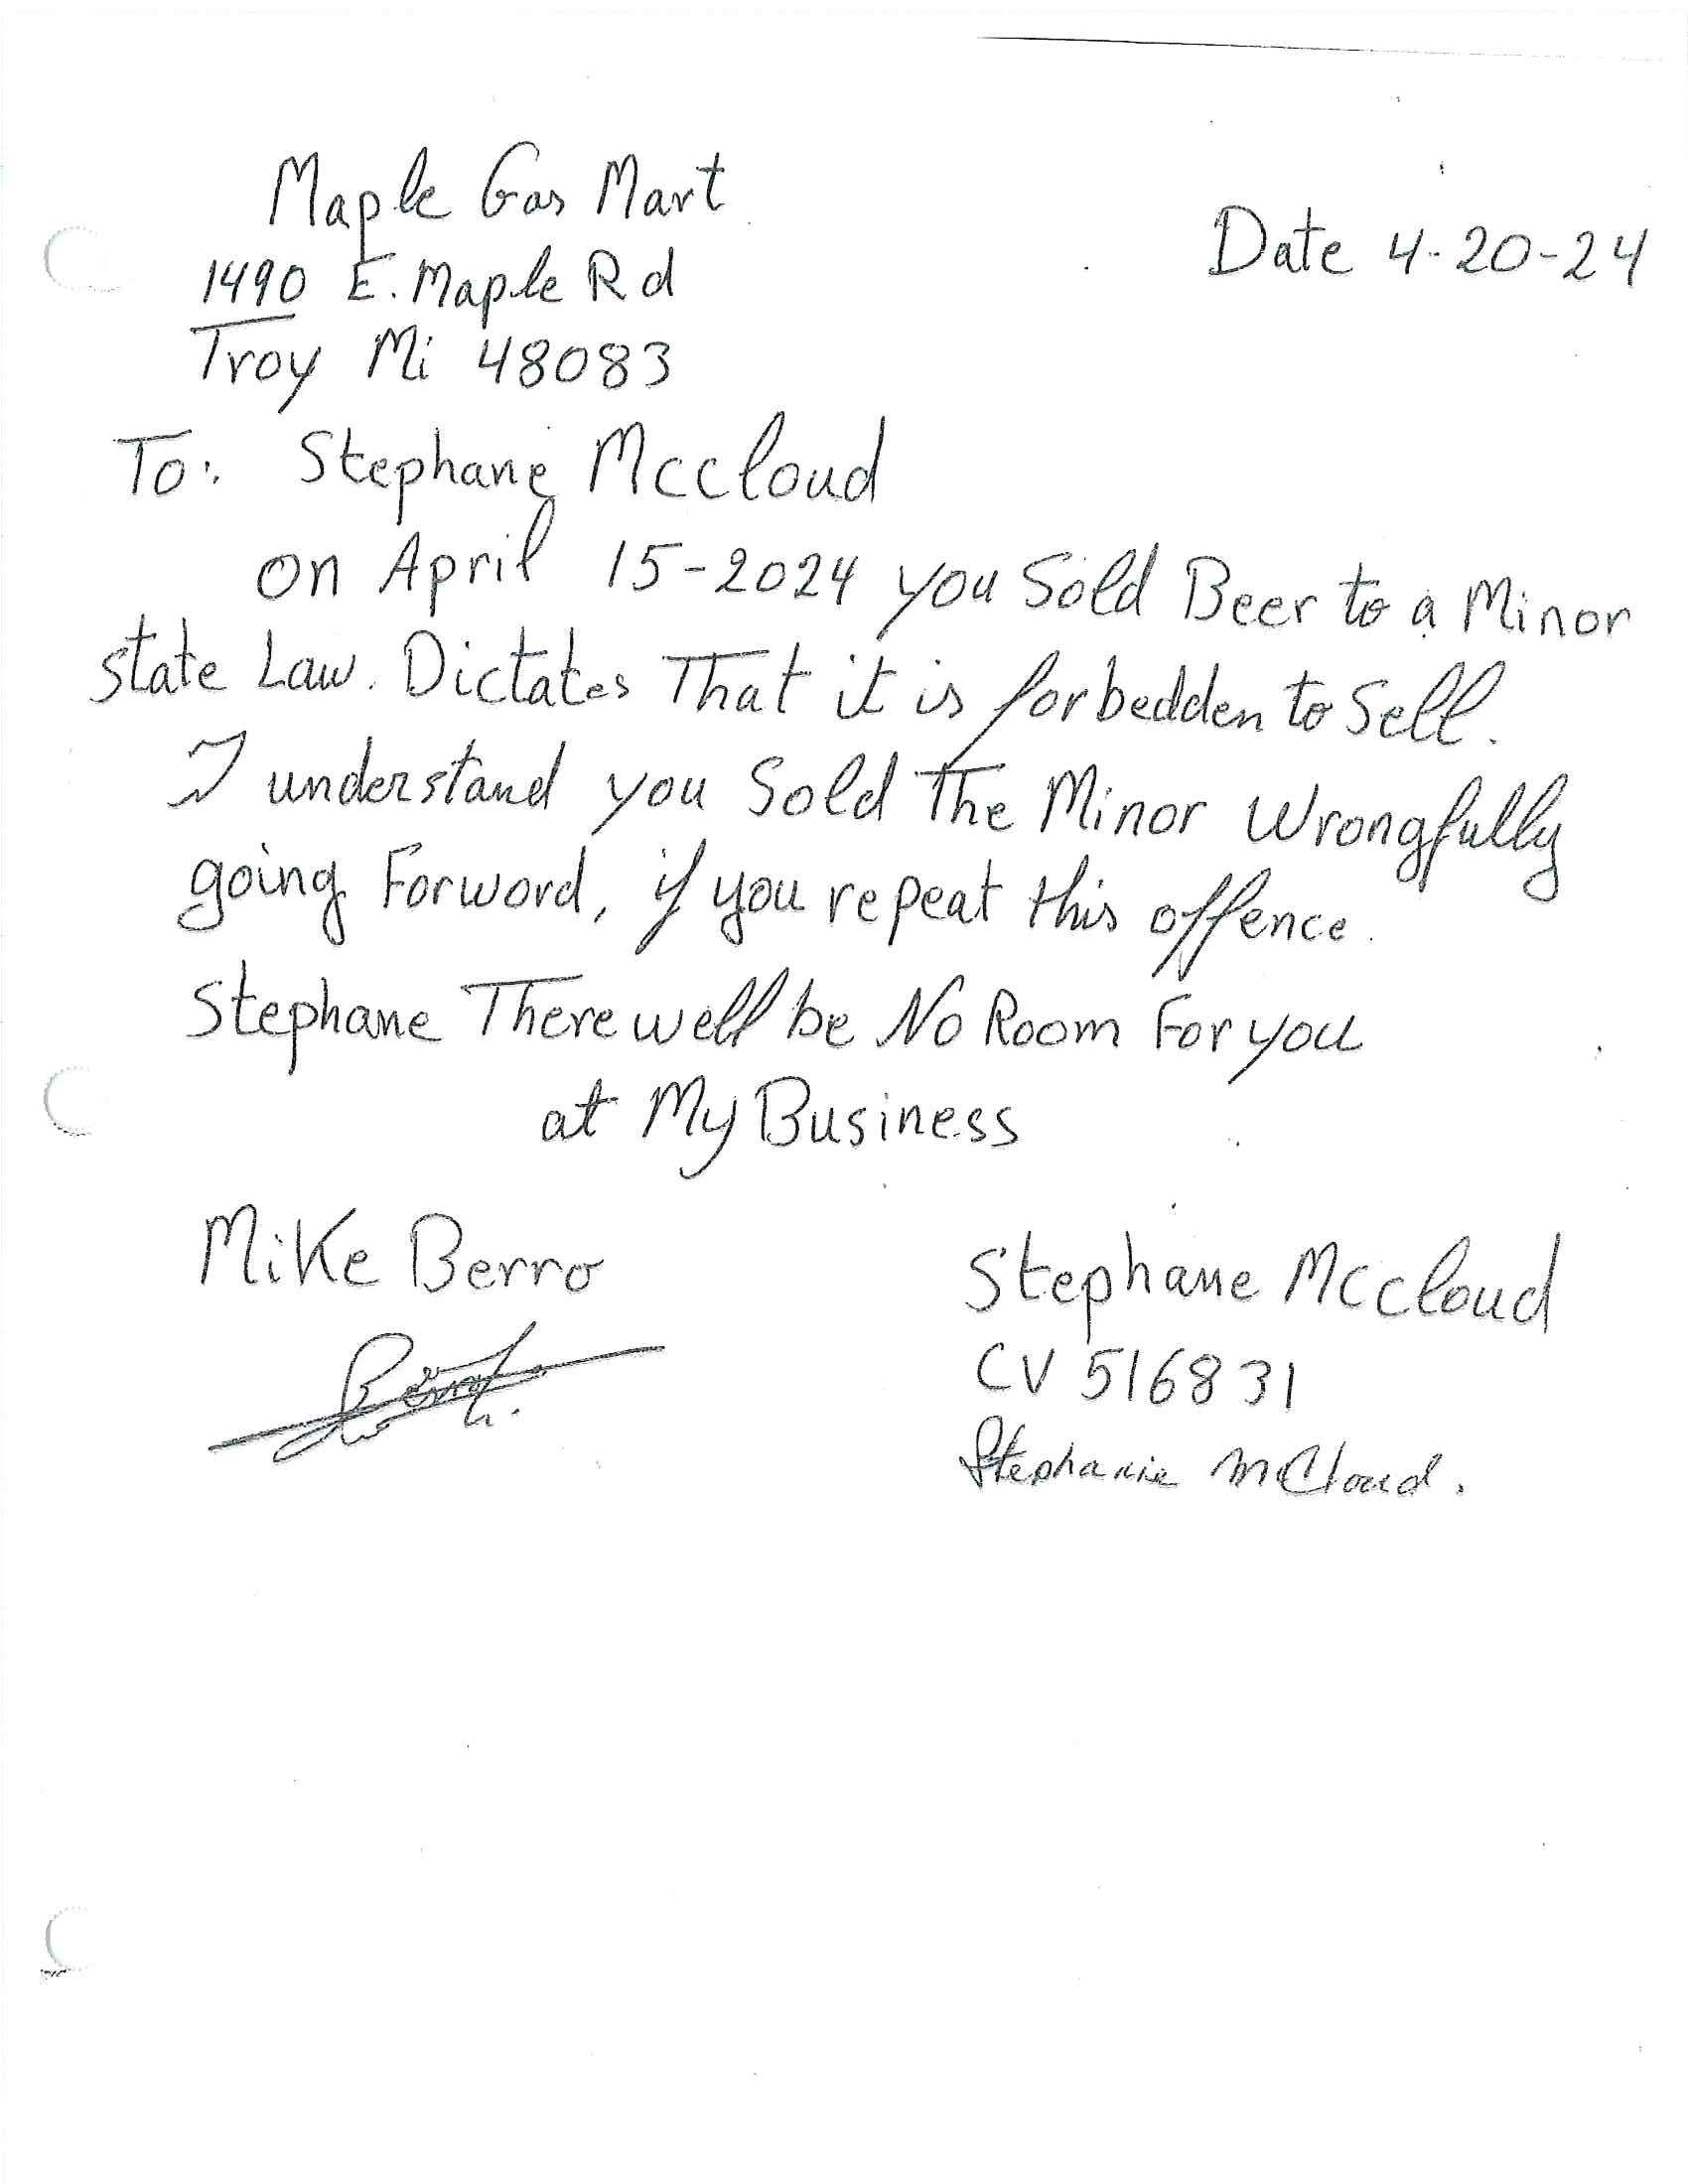 Maple Gas Mart
Date 4-20-24
1490 E. Maple Rd
Troy Mi 48083
To: Stephane Mccloud
on April 15-2024 you Sold Beer to a Minor
state Law. Dictates That it is forbedden to Sell.
I understand you Sold The Minor Wrongfully
going Forword, if you repeat this offence.
Stephane There well be No Room For you
at My Business
Mike Berro
Stephane Mccloud
CV 516831
Stephanie McCloud.